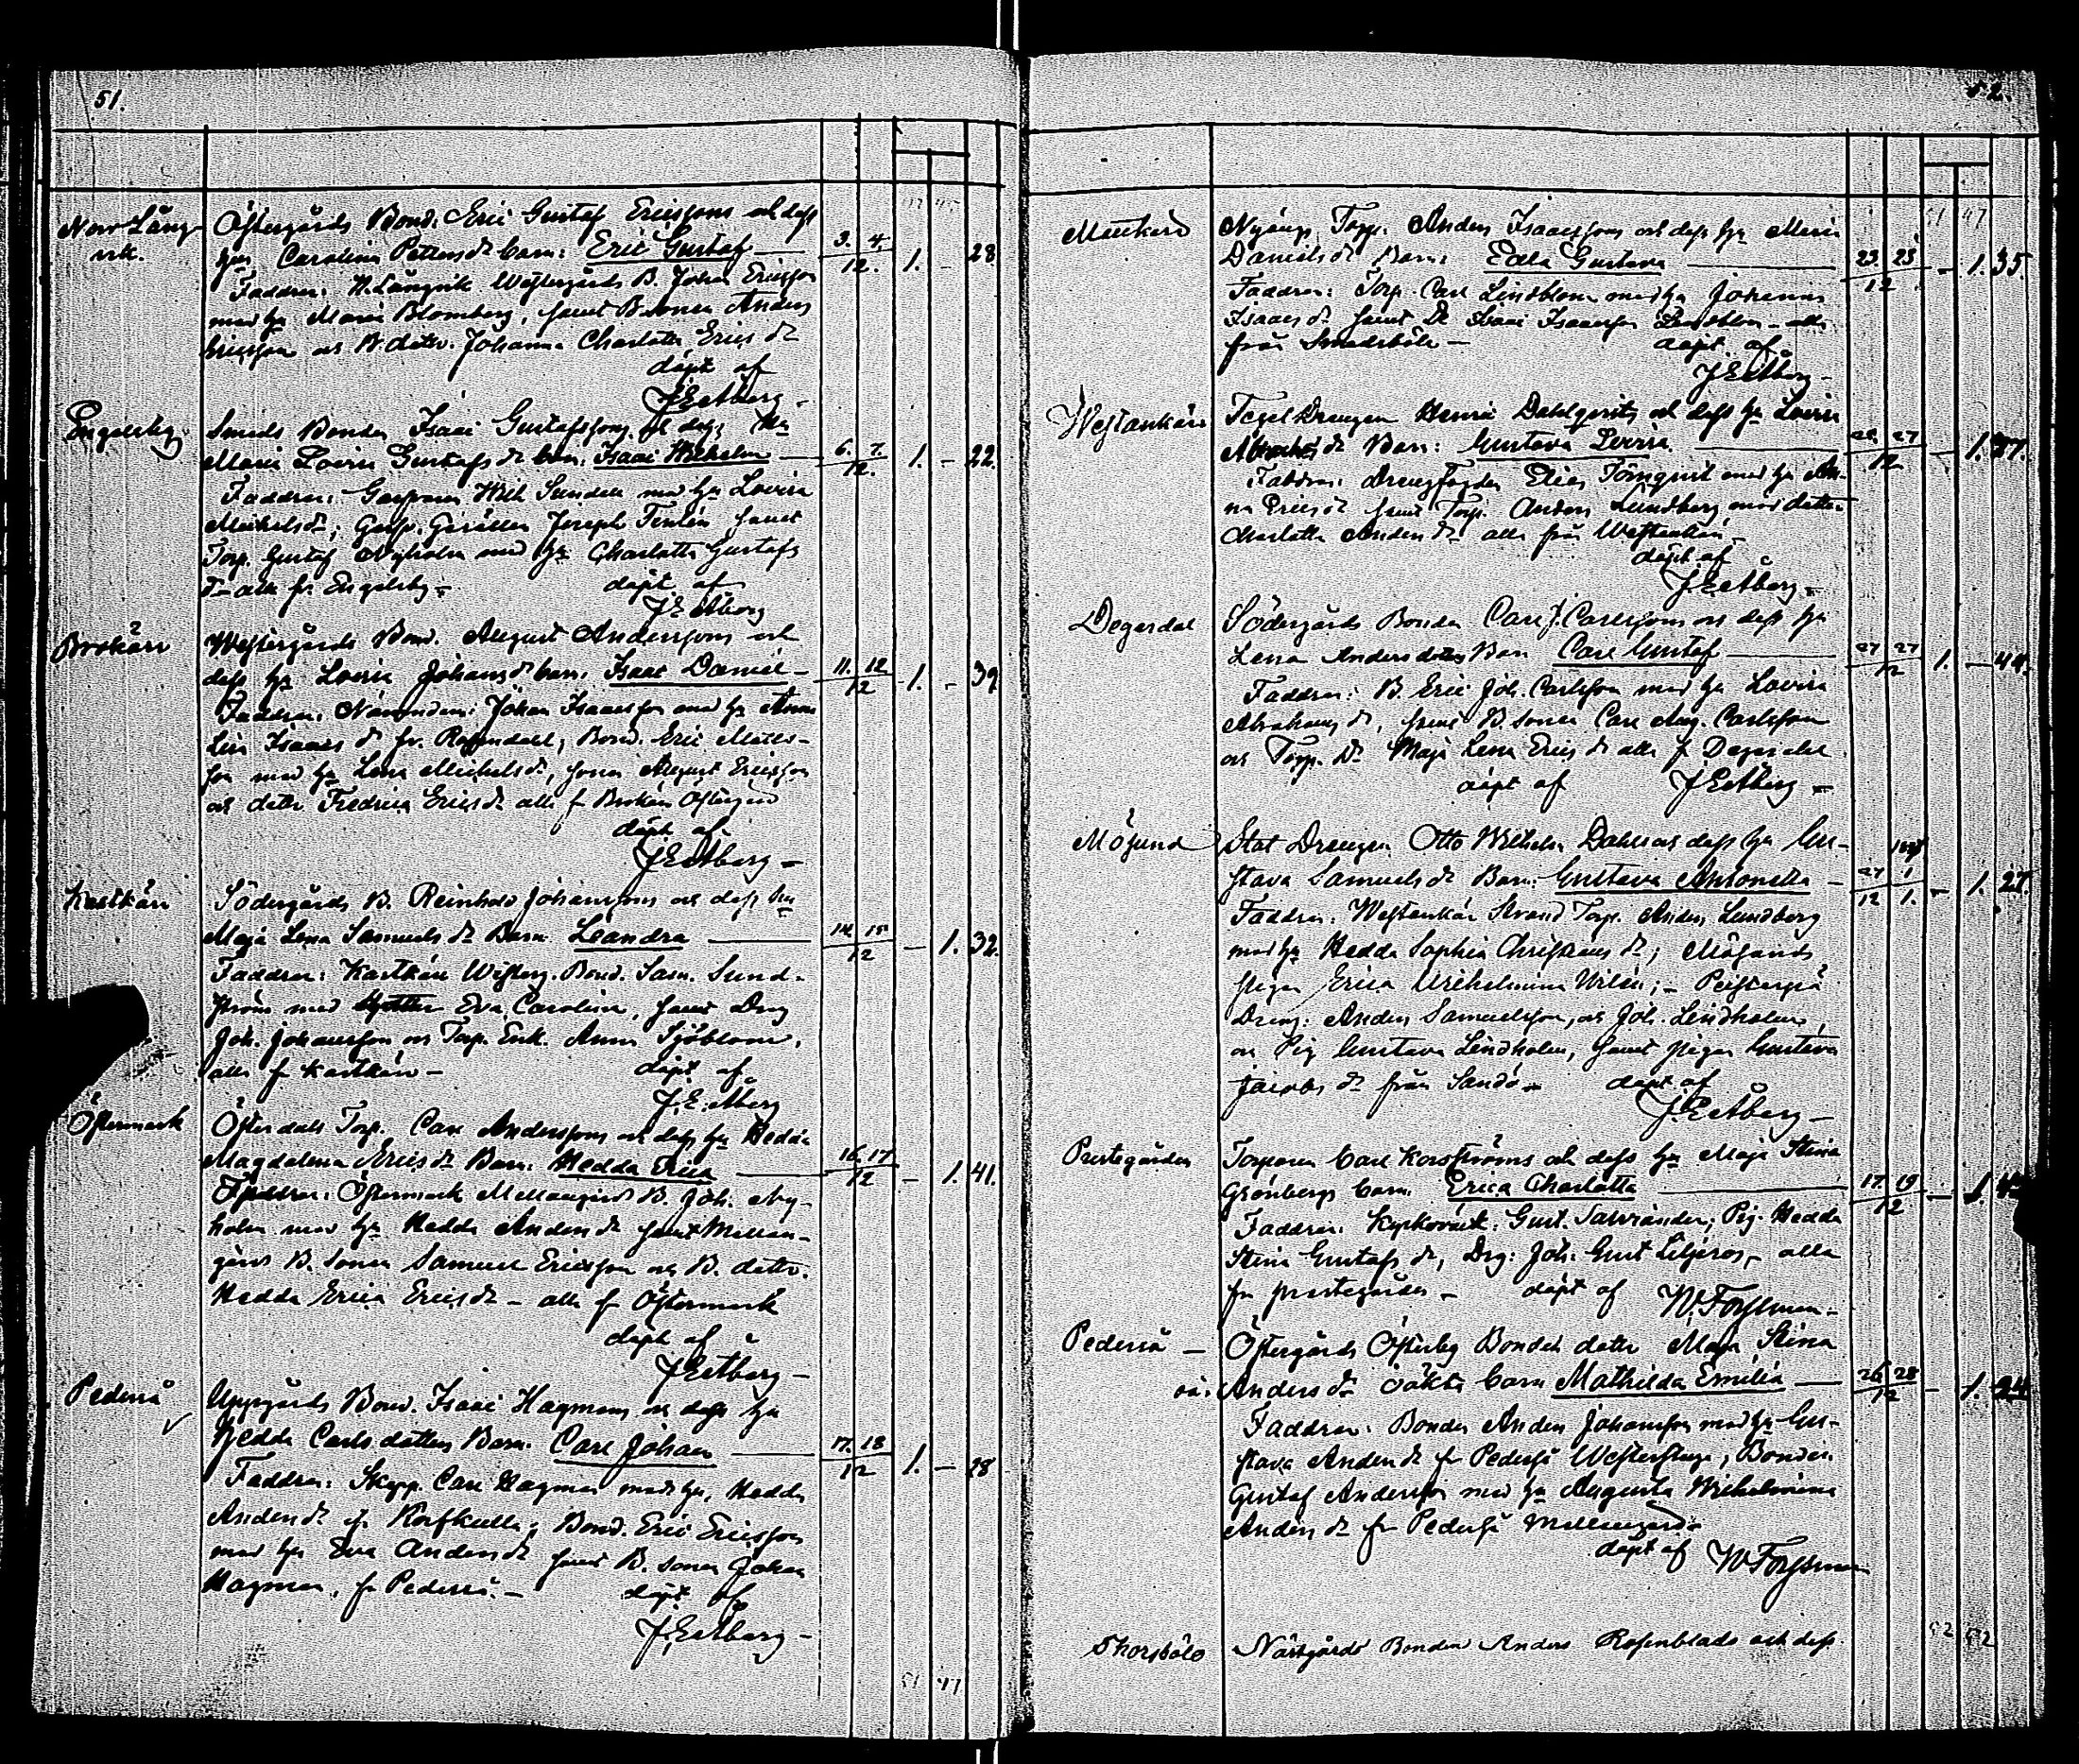 51.
Norr Lång-
vik.
Östergårds Bond. Eric Gustaf Ericssons och dess
hus Carolina Petters dr barn: Eric Gustaf — 3. 4. 12. 1. - 28
Faddrar: N. Långvik Westergårds B. Johan Ericsson
med hu Maria Blomberg, samt B. sonen Anders
Ericsson och B. dottr. Johanna Charlotta Erics dr
döpt af
J E Åberg -
Engelsby
Smeds Bonden Isaac Gustafssons och dess hu
Maria Lovisa Gustafs dr barn: Isaac Wilhelm — 6. 7. 12. 1. - 22.
Faddrar: Wilh Sundell med hu Lovisa
Michels dr; Joseph samt
Torp. Gustaf Nyholm med hu Charlotta Gustafs
dr alla fr Engelsby - döpt af
J E Åberg
Brokärr
Westergårds Bond. August Anderssons och
dess hu Lovisa Johans dr barn. Isaac Daniel - 11. 12 12 1. - 39
Faddrar. Nämndem: Johan Isaacsson med hu Anna
Lisa Isaacs dr fr. Rosendahl, Bond. Eric Matts-
son med hu Lena Michels dr, sonen August Ericsson
och dottr Fredrica Erics dr alla fr Brokärr Östergård
döpt af
J E Åberg -
Kastkärr
Södergårds B. Reinhold Johanssons och dess hu
Maja Lena Samuels dr Barn Leandra — 14. 15 12 — 1. 32.
Faddrar: Kastkärr Westerg. Bond. Sam. Sund-
ström med Eva Carolina, samt Dreng
Joh. Johansson och Torp. Enk. Anna Sjöblom,
alla fr Kastkärr - döpt af
J. E. Åberg
Östermark
Österdals Torp. Carl Anderssons och dess hu Hedda
Magdalena Erics dr Barn: Hedda Erica — 16. 17 12 - 1. 41.
Faddrar: Östermark Mellangård B. Joh. Ny-
holm med hu Hedda Anders dr samt Mellan-
gårds B. sonen Samuel Ericsson och B. dottr.
Hedda Erica Erics dr - alla fr Östermark
döpt af
J E Åberg -
Pederså
Uppgårds Bond. Isaac Hagmans och dess hu
Hedda Carlsdotters Barn. Carl Johan — 17. 18 12 1. - 28
Faddrar: Skepp. Carl Hagman med hu, Hedda
Anders dr fr Rosfkulla; Bond. Eric Ericsson
med hu Eva Anders dr samt B. sonen Johan
Hagman, fr Pederså. - döpt af
J. E Åberg -
51 47
52.
51 47
Nygårds Torp. Anders Isaacssons och dess hu Maria
Daniels dr Barn: Edla Gustava — 23. 25 12 - 1. 35.
Faddrar: Torp. Carl Lindblom med hu Johanna
Isaacs dr samt Dr Isaac Isaacsson Lindblom - alla
från Smedsböle - döpt af
J E Åberg -
Westankärr
Tegel Drengen Henric Dahlqvists och dess hu Lovisa
dr Barn: Gustava Lovisa — 26. 27 12 - 1. 27.
Faddrar: Drengfogden Elias Törnqvist med hu An-
na Erics dr samt Torp. Anders Lundberg med dotter
Charlotta Anders dr alla från Westankärr -
döpt af
J. E Åberg -
Degerdal
Södergårds Bonden Carl J. Carlssons och dess hu
Lena Andersdotters Barn Carl Gustaf — 27 27 12 1. - 44.
Faddrar: B. Eric Joh. Carlsson med hu Lovisa
Abrahams dr, samt B. sonen Carl Aug. Carlsson
och Torp. Dr Maja Lena Erics dr alla fr Degerdal
döpt af J E Åberg -
Mösund
Stat Drengen Otto Wilhelm Dahls och dess hu Gus-
stava Samuels dr Barn: Gustava Antonetta - 27 1 12 1. - 1. 27.
Faddrar: Westankär Strand Torp. Anders Lundberg
med hu Hedda Sophia Christians dr; Mösunds
pigan Erica Wilhelmina Wilén; -
Dreng: Anders Samuelsson, och Joh. Lindholm,
och Pig Gustava Lindholm, samt pigan Gustava
Jacobs dr från Sandö - döpt af
J. E Åberg -
Prestegården
Torparen Carl Korsströms och dess hu Maja Stina
Grönbergs barn. Erica Charlotta — 17. 19 12 - 1.
Faddrar. Kyrkovärd. Gust. Salviander; Pig. Hedda
Stina Gustafs dr, Drg: Joh. Gust Liljeros, - alla
fr prestegården - döpt af W. Forssman -
Pederså —
Östergårds Österby Bonden dotter Maja Stina
oä. Anders dr oäkta barn Mathilda Emilia — 26. 28 12 - 1. 24
Faddrar. Bonden Anders Johansson med hu Gus-
stava Anders dr fr Pederså Westerstuga, Bonden
Gustaf Andersson med hu Augusta Wilhelmina
Anders dr fr Pederså Mellangård -
döpt af W Forssman
52 52
Thorsböle Nästgårds Bonden Anders Rosenblads och dess